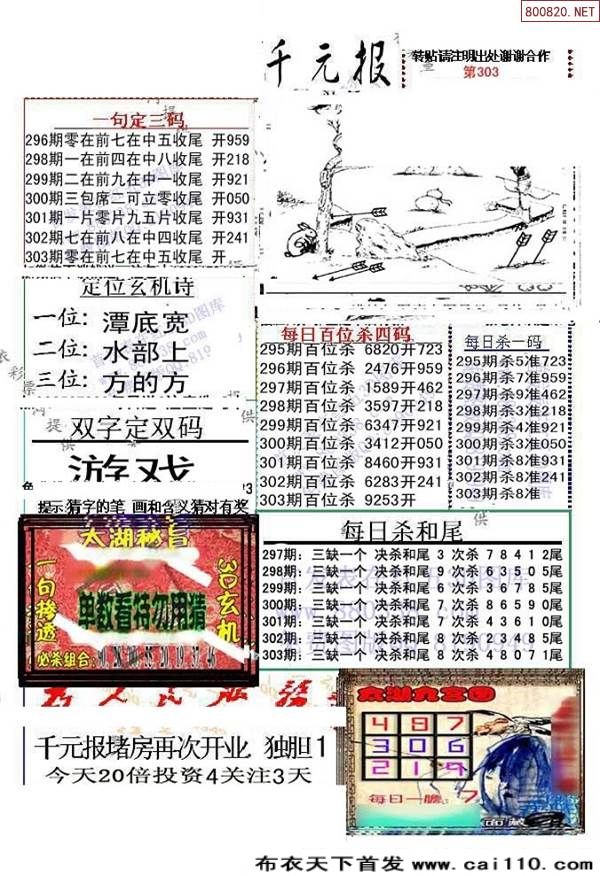 800820.NET
千元报
转贴请注明出处谢谢合作
第303
一句定三码
296期零在前七在中五收尾 开959
298期一在前四在中八收尾 开218
299期二在前九在中一收尾 开921
300期三包席二可立零收尾 开050
301期一片零片九五片收尾 开931
302期七在前八在中四收尾 开241
303期零在前七在中五收尾 开
定位玄机诗
一位: 潭底宽
二位: 水部上
三位: 方的方
双字定双码
游戏
提示:猜字的笔 画和含义猜对有奖
每日百位杀四码
295期百位杀 6820开723
296期百位杀 2476开959
297期百位杀 1589开462
298期百位杀 3597开218
299期百位杀 6347开921
300期百位杀 3412开050
301期百位杀 8460开931
302期百位杀 6283开241
303期百位杀 9253开
每日杀一码
295期杀5准723
296期杀7准959
297期杀9准462
298期杀3准218
299期杀4准921
300期杀3准050
301期杀8准931
302期杀8准241
303期杀8准
每日杀和尾
297期: 三缺一个 决杀和尾 3 次杀 7 8 4 1 2尾
298期: 三缺一个 决杀和尾 9 次杀 6 3 5 0 5尾
299期: 三缺一个 决杀和尾 6 次杀 3 6 7 8 5尾
300期: 三缺一个 决杀和尾 7 次杀 8 6 5 9 0尾
301期: 三缺一个 决杀和尾 7 次杀 4 3 6 1 0尾
302期: 三缺一个 决杀和尾 8 次杀 4 3 6 8 5尾
303期: 三缺一个 决杀和尾 8 次杀 4 8 0 7 1尾
太湖秘旨
一句掺透
3D玄机
单数看特勿用猜
必杀组合:
千元报堵房再次开业 独胆1
今天20倍投资4关注3天
太湖九宫图
4 8 7
3 0 6
2 1 9
每日一胆 7
布衣天下首发 www.cai110.com